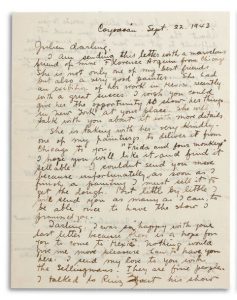 Coyoacan Sept. 22 1943
Julien darling,
I am sending this letter with a marvelous
friend of mine Florence Arquin from Chicago
She is not only one of my best friends
but also a very good painter. She had
an exhibition of her work in Mexico recently
with great success. I wish you could
give her the opportunity to show her things
in New York at your place. She will
talk with you about it with more details
She is taking with her very kindly
one of my paintings to deliver it from
Chicago to you "Frida and four monkeys"
I hope you will like it and find it
sellable. I couldn't send you more
because unfortunately, as soon as I
finish a painting I must sell it to
get the dough. But little by little I
will send you as many as I can, to
be able once to have the show I
promised you.
Darling, I was so happy with your
last letter because I have a hope for
you to come to Mexico. Nothing would
give me more pleasure than to have you
here. I send my love to you with
the They are fine people.
I talked to about his show